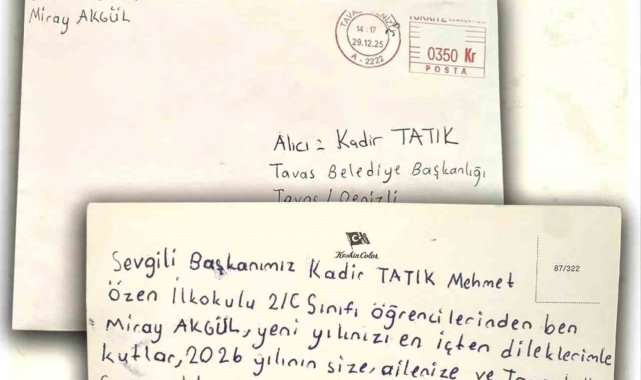 Miray AKGÜL
TAVAS DENİZLİ
14:17
29.12.25
A-2222
TÜRKİYE
0350 Kr
POSTA
Alıcı: Kadir TATIK
Tavas Belediye Başkanlığı
Tavas / Denizli
Keskin Color
87/322
Sevgili Başkanımız Kadir TATIK Mehmet
Özen İlkokulu 2/C Sınıfı öğrencilerinden ben
Miray AKGÜL, yeni yılınızı en içten dileklerimle
kutlar, 2026 yılının size, ailenize ve